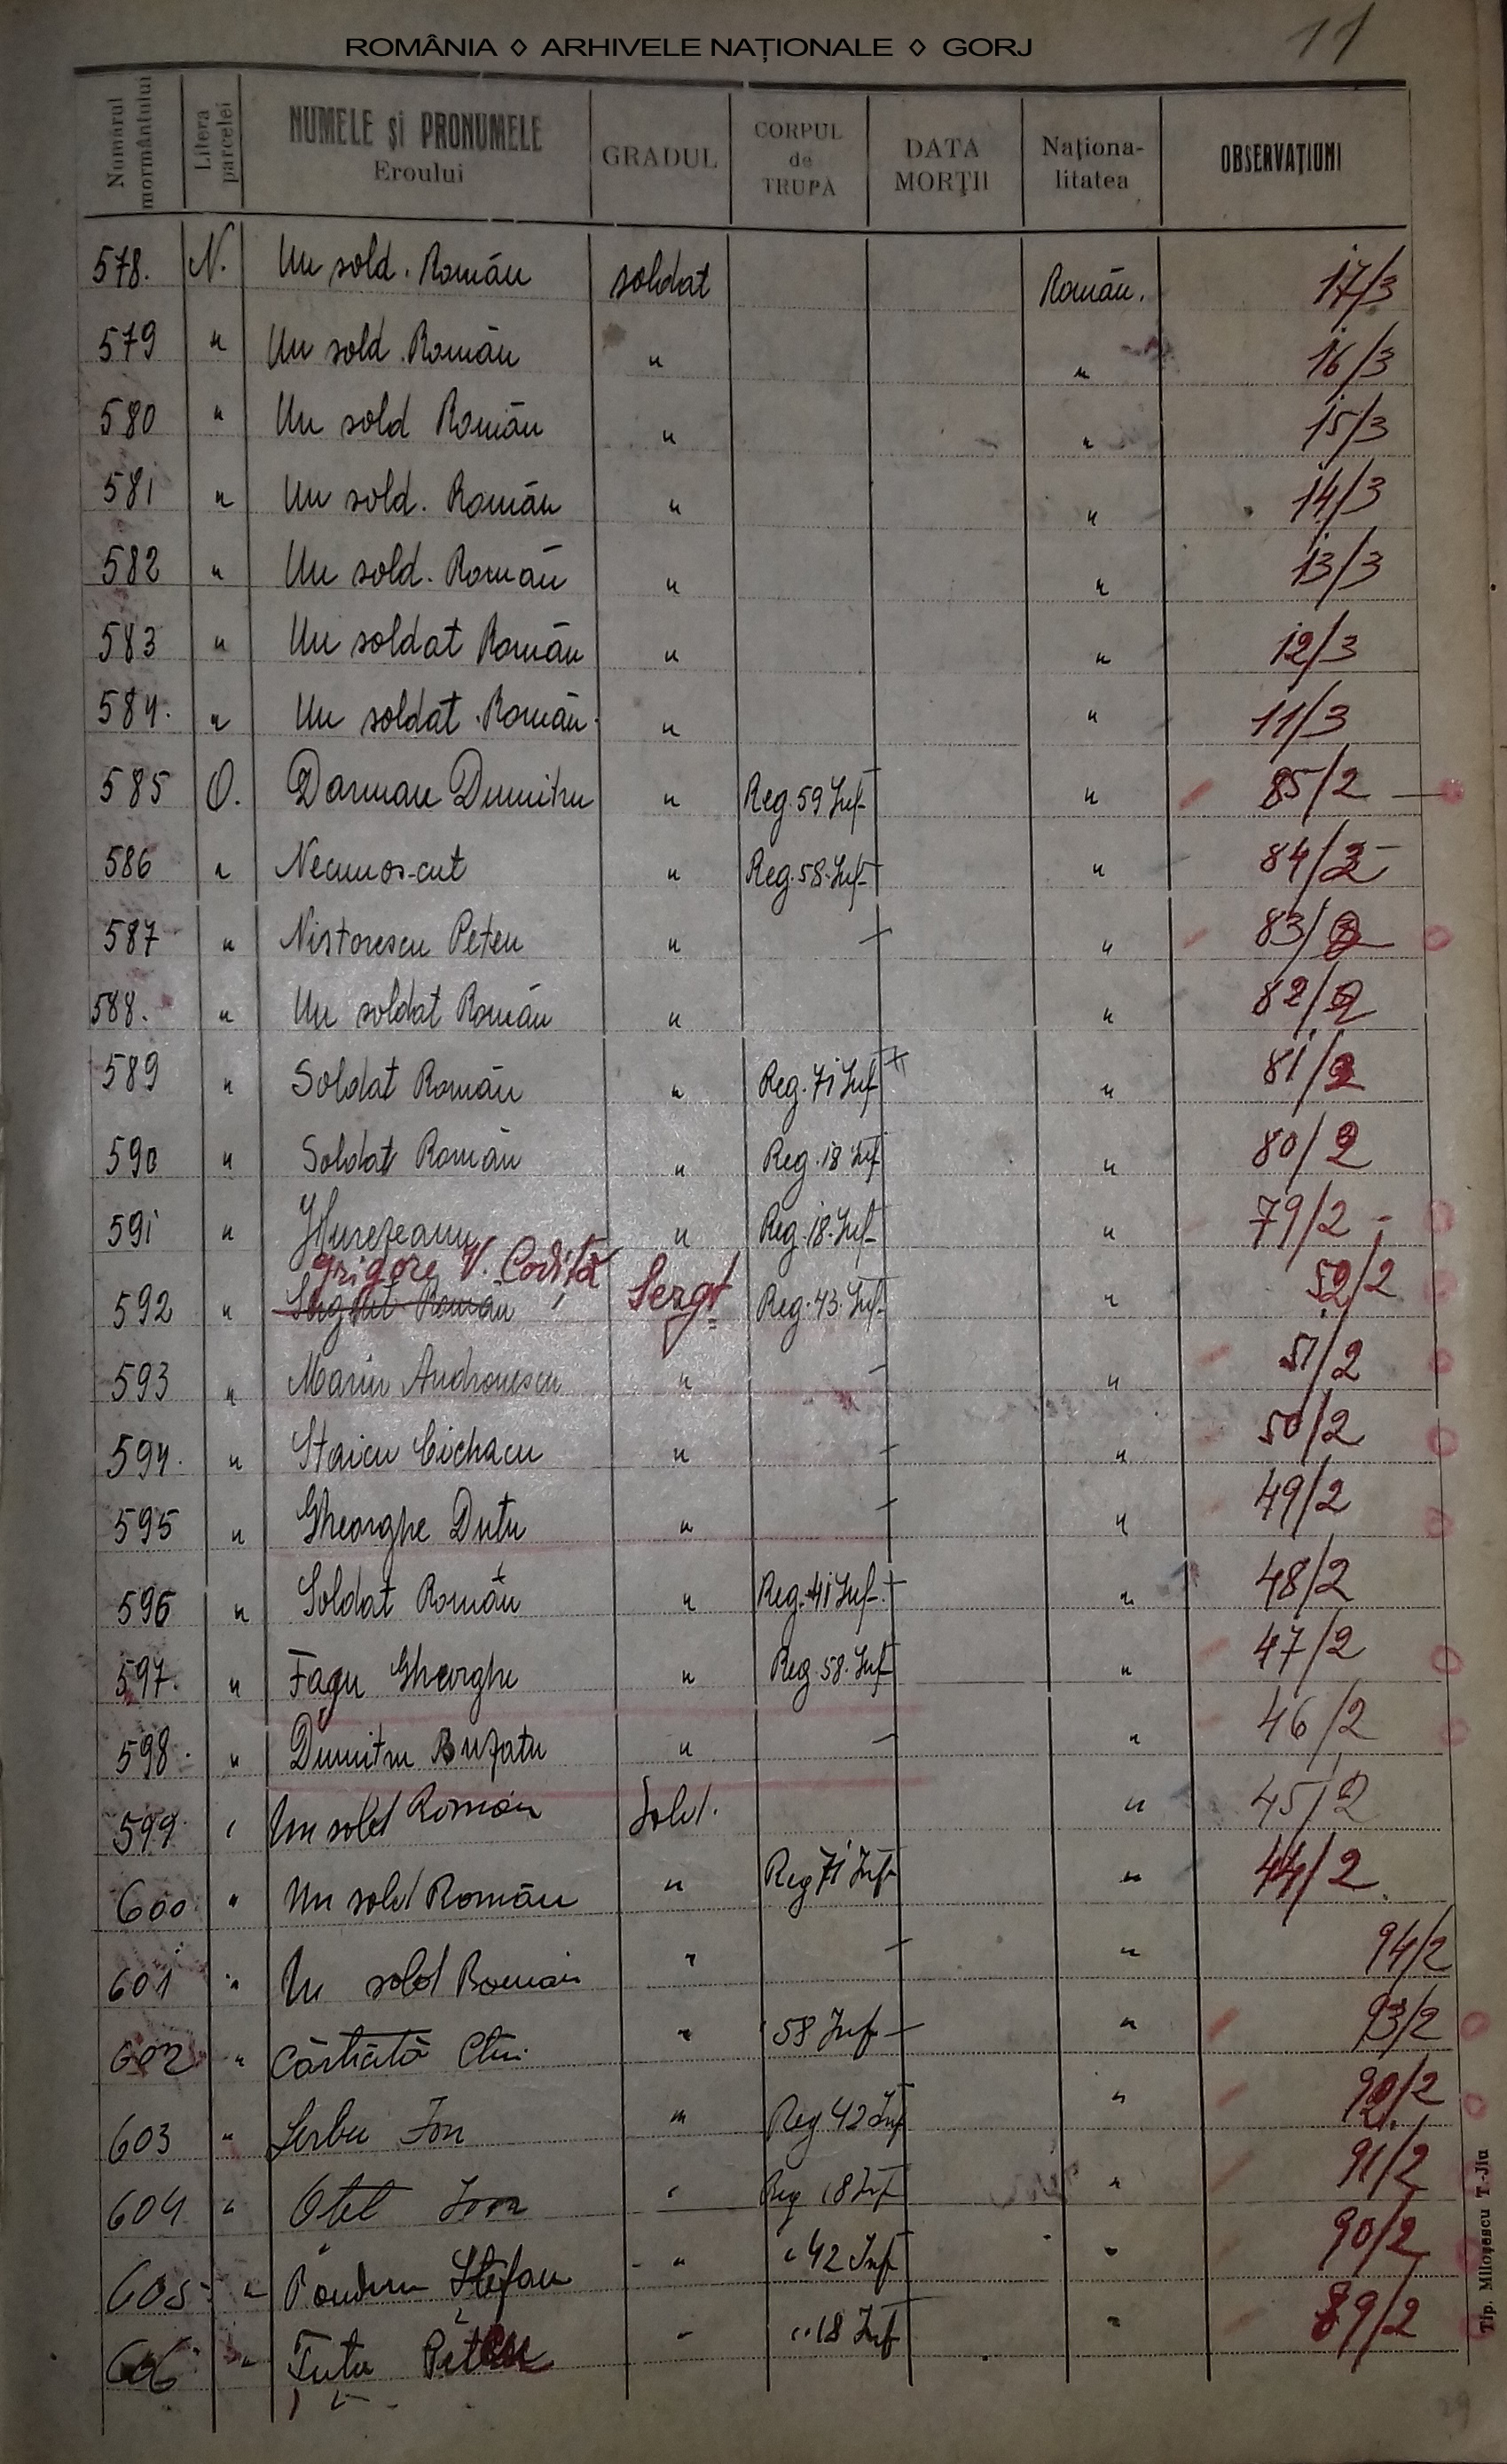 ROMÂNIA ◊ ARHIVELE NAȚIONALE ◊ GORJ
11
Numărul mormântului Litera parcelei NUMELE și PRONUMELE Eroului GRADUL CORPUL de TRUPĂ DATA MORȚII Naționa-litatea OBSERVAȚIUNI
578. N. Un sold. Român soldat Român. 17/3
579 " Un sold. Român " " 16/3
580 " Un sold Român " " 15/3
581 " Un sold. Român " " 14/3
582 " Un sold. Român " " 13/3
583 " Un soldat Român " " 12/3
584. " Un soldat Român. " " 11/3
585 O. Darman Dumitru " Reg. 59 Inf " 85/2
586 " Necunos-cut " Reg. 58. Inf " 84/2
587 " Nistorescu Petru " " 83/2
588. " Un soldat Român " " 82/2
589 " Soldat Român " Reg. 71 Inf " 81/2
590 " Soldat Român " Reg. 18 Inf " 80/2
591 " Hurezeanu " Reg. 18. Inf " 79/2
Grigore V. Codiță
592 " Sergent Român Sergt Reg. 43. Inf. " 52/2
593 " Marin Andronescu " " 51/2
594. " " " 50/2
595 " Gheorghe Dutu " " 49/2
596 " Soldat Român " Reg. 41 Inf. " 48/2
597. " Fagu Gheorghe " Reg. 58. Inf " 47/2
598. " Dumitru Buzatu " " 46/2
599. " Un sold Român Sold. " 45/2
600 " Un sold Român " Reg 71 Inf " 44/2
601 " Un sold Roman " " 94/2
602 " Cârstătă Ctin. " 58 Inf " 93/2
603 " Serbu Ion " Reg 42 Inf " /2
604 " Otel Ion " Reg 18 Inf " 91/2
605 " Ștefan " " 42 Inf " 90/2
606 " Țuțu Petru " " 18 Inf " 89/2
Tip. Miloșescu T.-Jiu
29